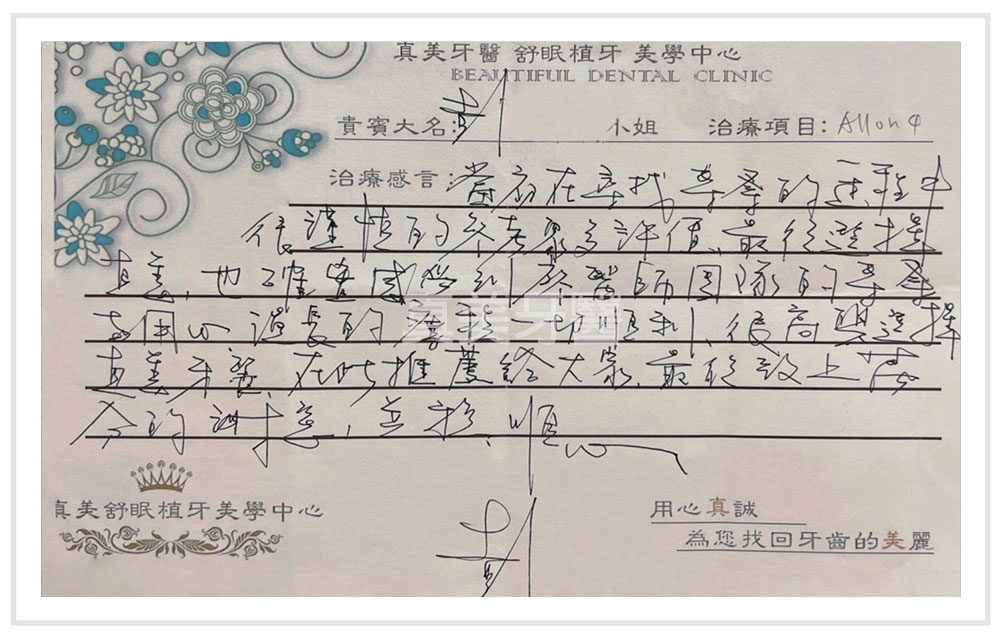 真美牙醫 舒眠植牙 美學中心
BEAUTIFUL DENTAL CLINIC
貴賓大名: 小姐 治療項目: All on 4
治療感言: 當初在尋找專業的過程中
很謹慎的參考眾多評價、最後選擇
真美、也確實感受到 醫師團隊的專業
與用心 過長的療程一切順利、很高興選擇
真美牙醫、在此推薦給大家、最後致上
的謝意、 順心
真美舒眠植牙美學中心
用心真誠
為您找回牙齒的美麗
真美牙醫